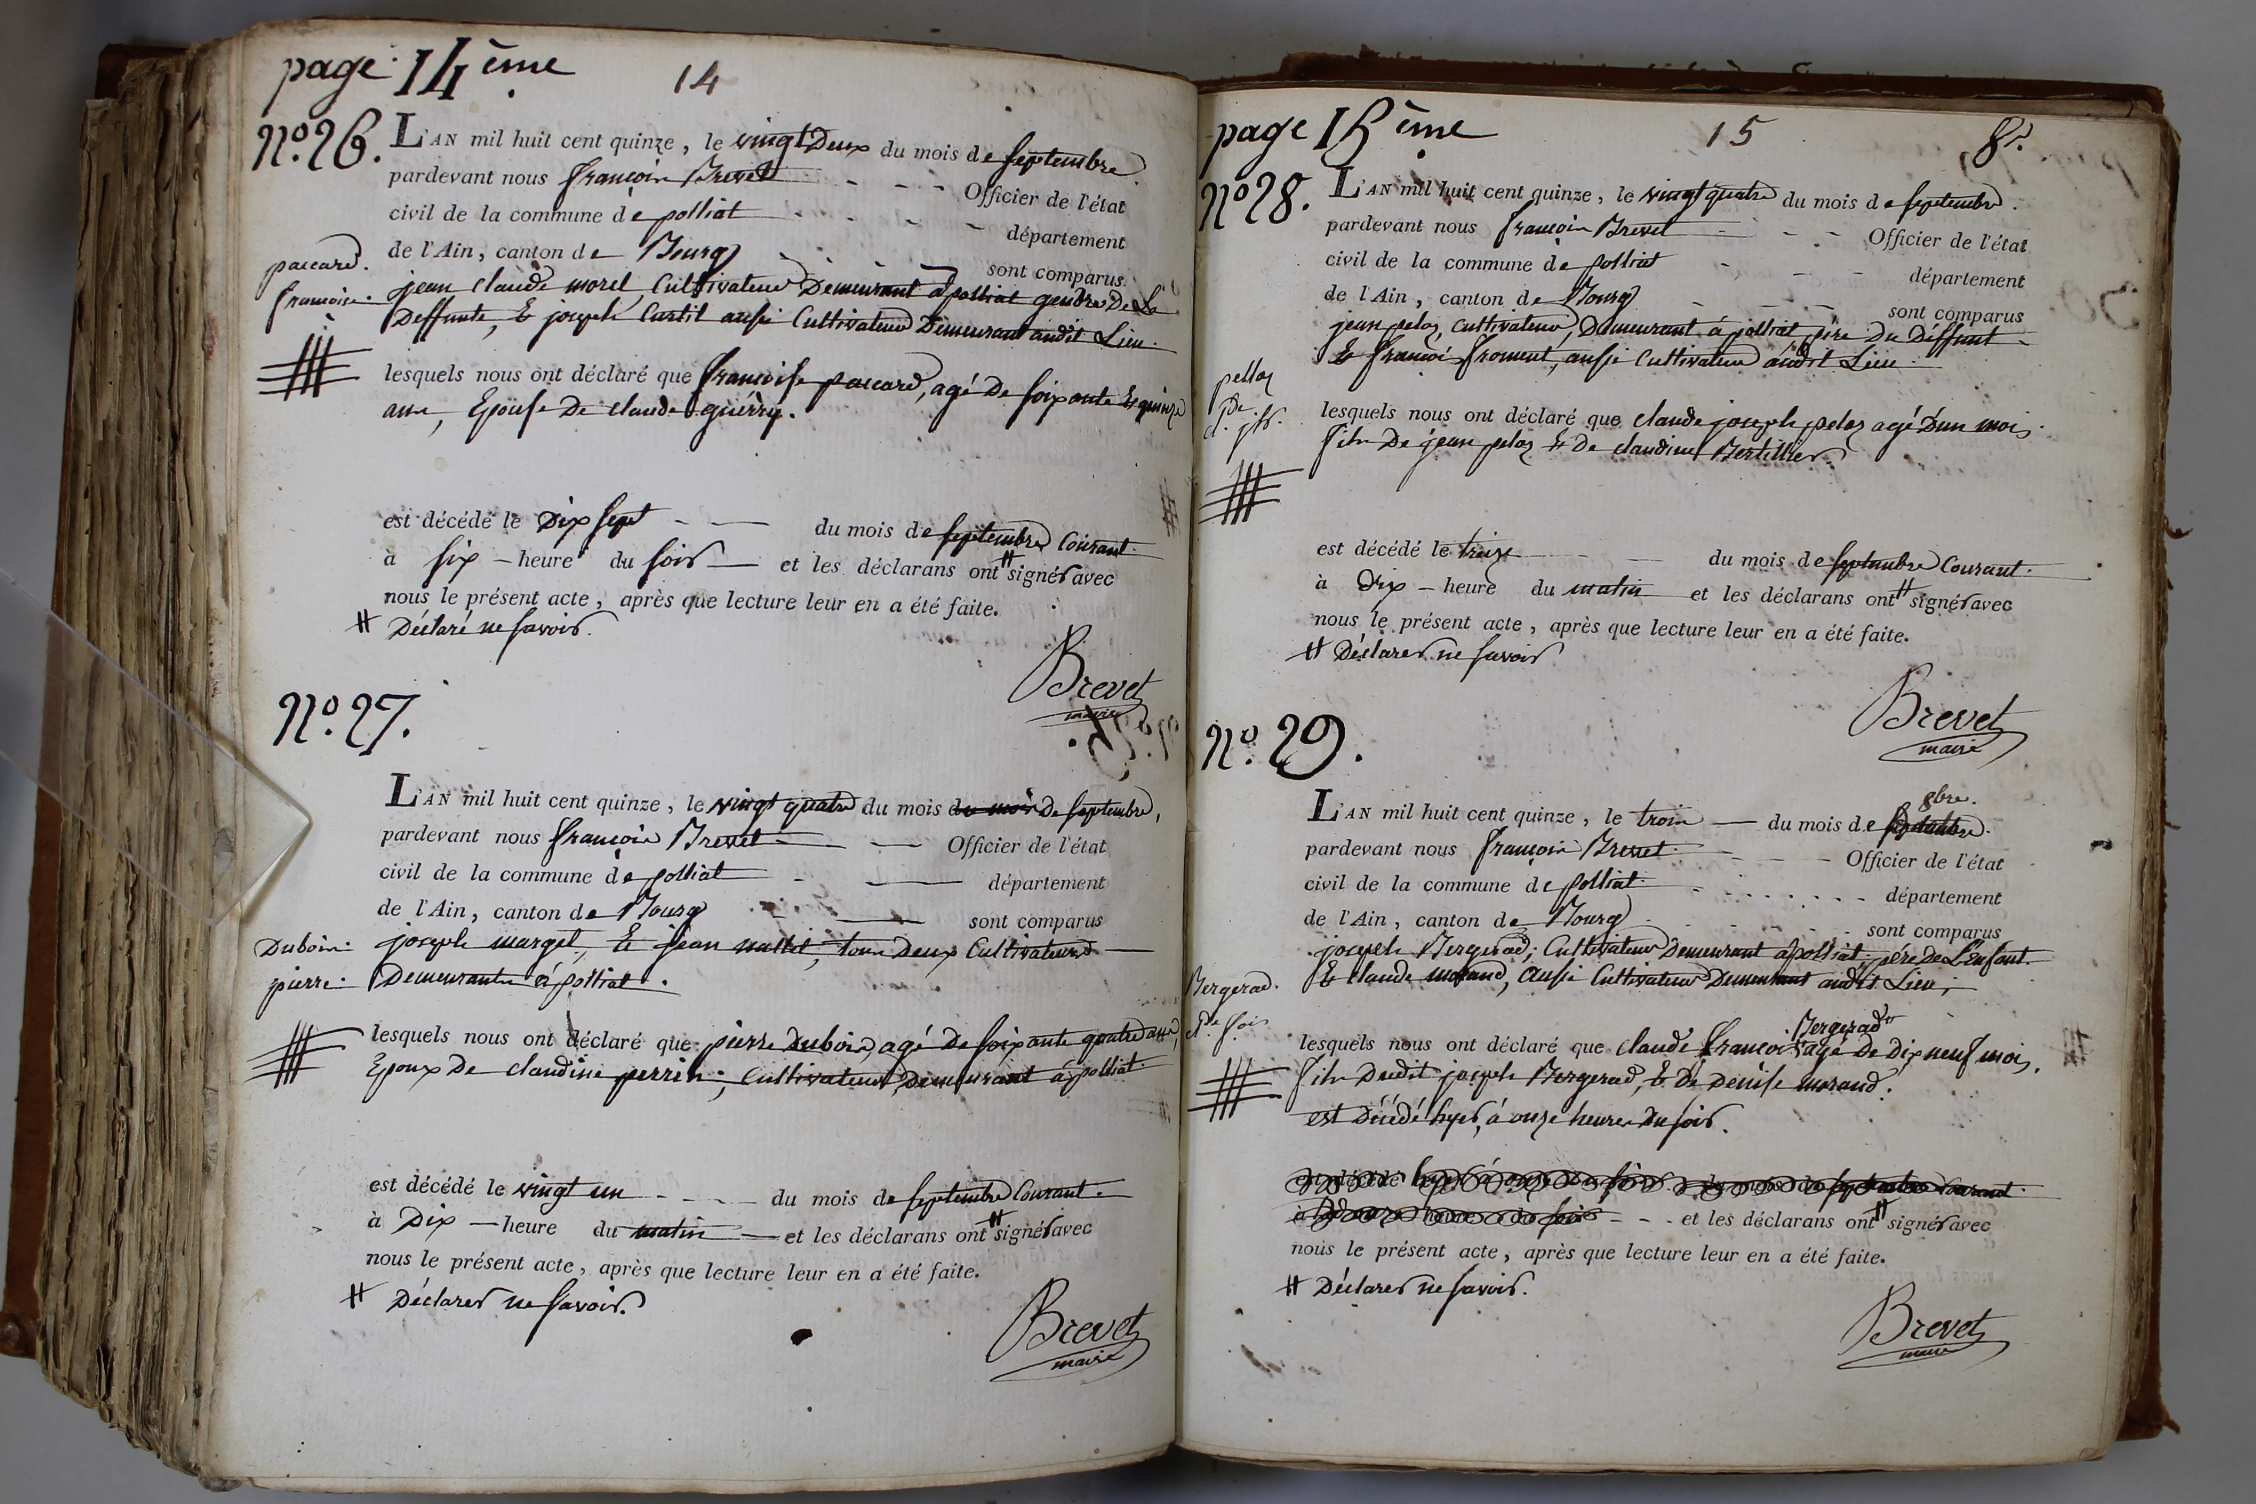 page 14ème 14
N.º 26. L'AN mil huit cent quinze, le vingt Deux du mois de septembre
pardevant nous françois Brevet Officier de l'état
civil de la commune de polliat département
de l'Ain, canton de Bourg sont comparus
paccard. françoise.
jean claude morel Cultivateur Demeurant à polliat gendre De La
Deffunte, & joseph Curtil aussi Cultivateur Demeurant audit Lieu.
lesquels nous ont déclaré que françoise paccard, agé De soixante & quinze
ans, Epouse De claude guérry.
est décédé le Dix sept du mois de septembre Courant.
à six heure du soir et les déclarans ont # signér avec
nous le présent acte, après que lecture leur en a été faite.
# Déclaré ne savoir.
Brevet
maire
N.º 27.
L'AN mil huit cent quinze, le vingt quatre du mois du mois De septembre,
pardevant nous françois Brevet Officier de l'état
civil de la commune de polliat département
de l'Ain, canton de Bourg sont comparus
Dubois. pierre.
joseph marget, & jean mallet, tous Deux Cultivateurs
Demeurants à polliat.
lesquels nous ont déclaré que pierre Dubois, agé De soixante quatre ans,
Epoux De claudine perrin, Cultivateur, Demeurant à polliat.
est décédé le vingt un du mois de septembre Courant.
à Dix heure du matin et les déclarans ont # signér avec
nous le présent acte, après que lecture leur en a été faite.
# Déclarer ne savoir.
Brevet
maire
page 15ème 15 8.
Nº 28. L'AN mil huit cent quinze, le vingt quatre du mois de septembre.
pardevant nous françois Brevet Officier de l'état
civil de la commune de polliat département
de l'Ain, canton de Bourg sont comparus
jean peloz, cultivateur, Demeurant à polliat, père Du Déffunt
& françoi froment, aussi Cultivateur audit Lieu.
pelloz
cl.de jph.
lesquels nous ont déclaré que claude joseph peloz agé D'un mois.
fils De jean peloz & De claudine Bertillier
est décédé le treize du mois de septembre Courant.
à Dix heure du matin et les déclarans ont # signér avec
nous le présent acte, après que lecture leur en a été faite.
# Déclarer ne savoir
Brevet
maire
N.º 29.
8bre.
L'AN mil huit cent quinze, le trois du mois de septembre.
pardevant nous françois Brevet Officier de l'état
civil de la commune de polliat. département
de l'Ain, canton de Bourg sont comparus
joseph Bergerad, Cultivateur Demeurant à polliat, père De L'Enfant.
& claude morand, aussi Cultivateur Demeurant audit Lieu,
Bergerad.
cl.de fois
Bergerad
lesquels nous ont déclaré que claude françois agé De Dix neuf mois,
fils Dudit joseph Bergerad, & De Denise morand.
est Décédé hyer, à onze heures Du soir.
et les déclarans ont # signér avec
nous le présent acte, après que lecture leur en a été faite.
# Déclarer ne savoir.
Brevet
maire